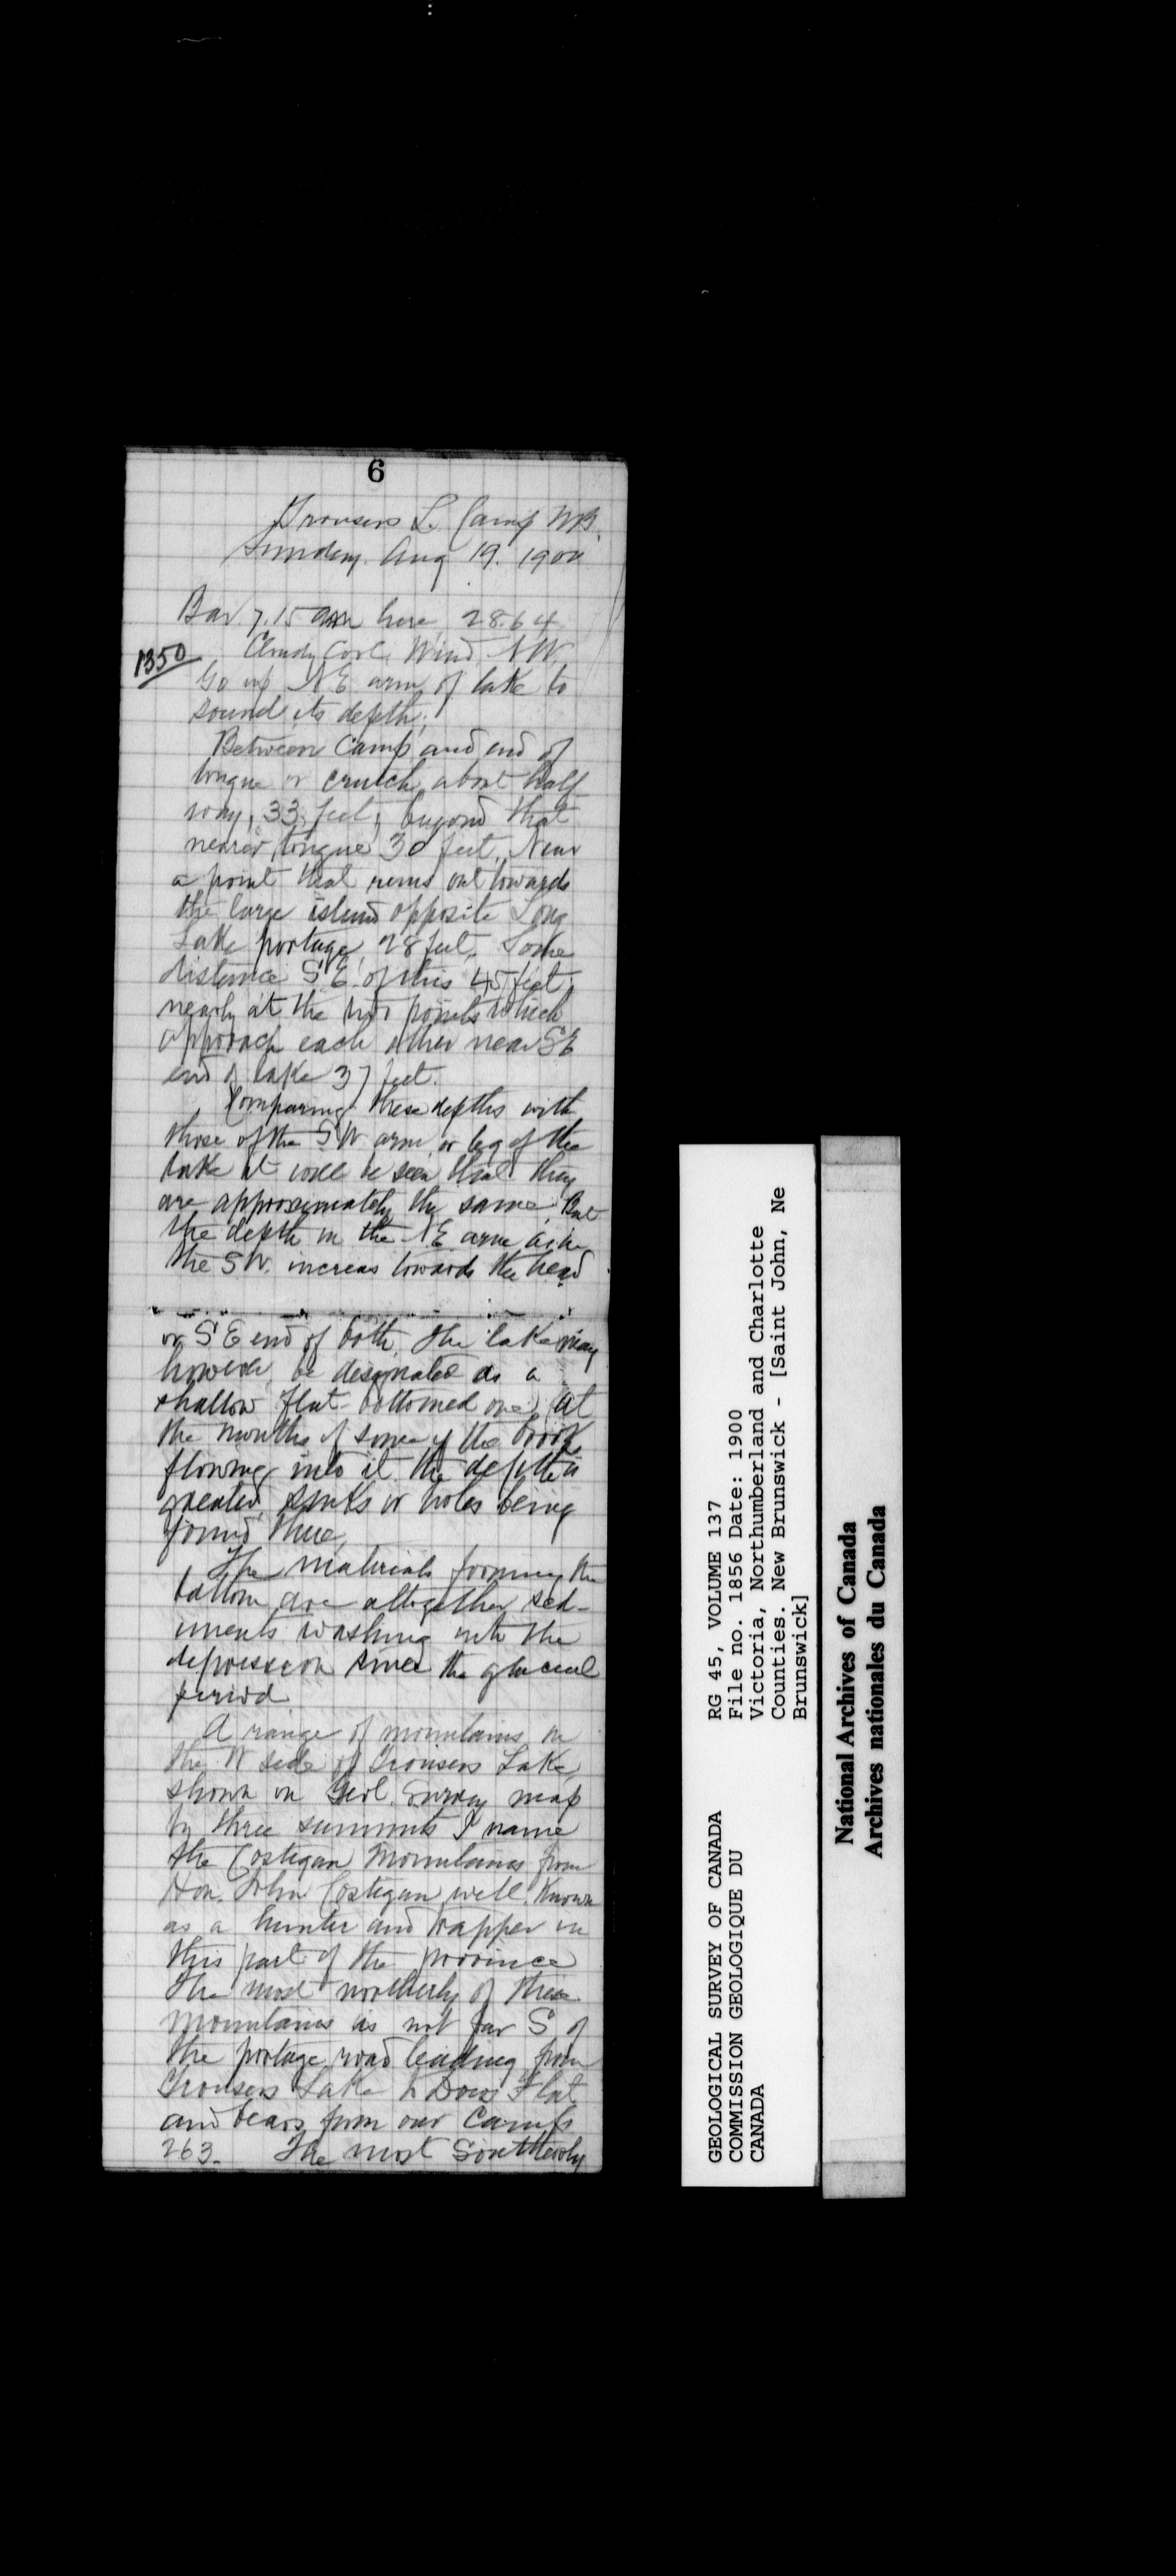 6
Trousers L. Camp N.B.
Sunday. Aug 19. 1900
Bar. 7.15 am here 28.64
1350
Cloudy Cool. Wind NW.
Go up NE arm of lake to
sound its depth.
Between Camp and end of
tongue or crutch about half
way, 33 feet; beyond that
nearer tongue 30 feet. Near
a point that runs out towards
the large island opposite Long
Lake portage 28 feet. Some
distance SE of this 45 feet;
nearly at the two points which
approach each other near SE
end of lake 37 feet.
Comparing these depths with
those of the SW arm or leg of the
lake it will be seen that they
are approximately the same. But
the depth in the NE arm as in
the SW. increas towards the head
or SE end of both. The lake may
however, be designated as a
shallow flat-bottomed one, (at
the mouths of some of the brooks
flowing into it the depth is
greater, sinks or holes being
found there.
The materials forming the
bottom are altogether sed-
iments washing into the
depression since the glacial
period.
A range of mountains on
the W side of Trousers Lake,
shown on Geol. Survey map
by three summits I name
the Costigan Mountains from
Hon. John Costigan, well known
as a hunter and trapper in
this part of the province
The most northerly of these
mountains is not far S of
the portage road leading from
Trousers Lake to Dows Flat
and bears from our Camp
263. The most Southerly
GEOLOGICAL SURVEY OF CANADA
COMMISSION GEOLOGIQUE DU
CANADA
RG 45, VOLUME 137
File no. 1856 Date: 1900
Victoria, Northumberland and Charlotte
Counties. New Brunswick - [Saint John, Ne
Brunswick]
National Archives of Canada
Archives nationales du Canada